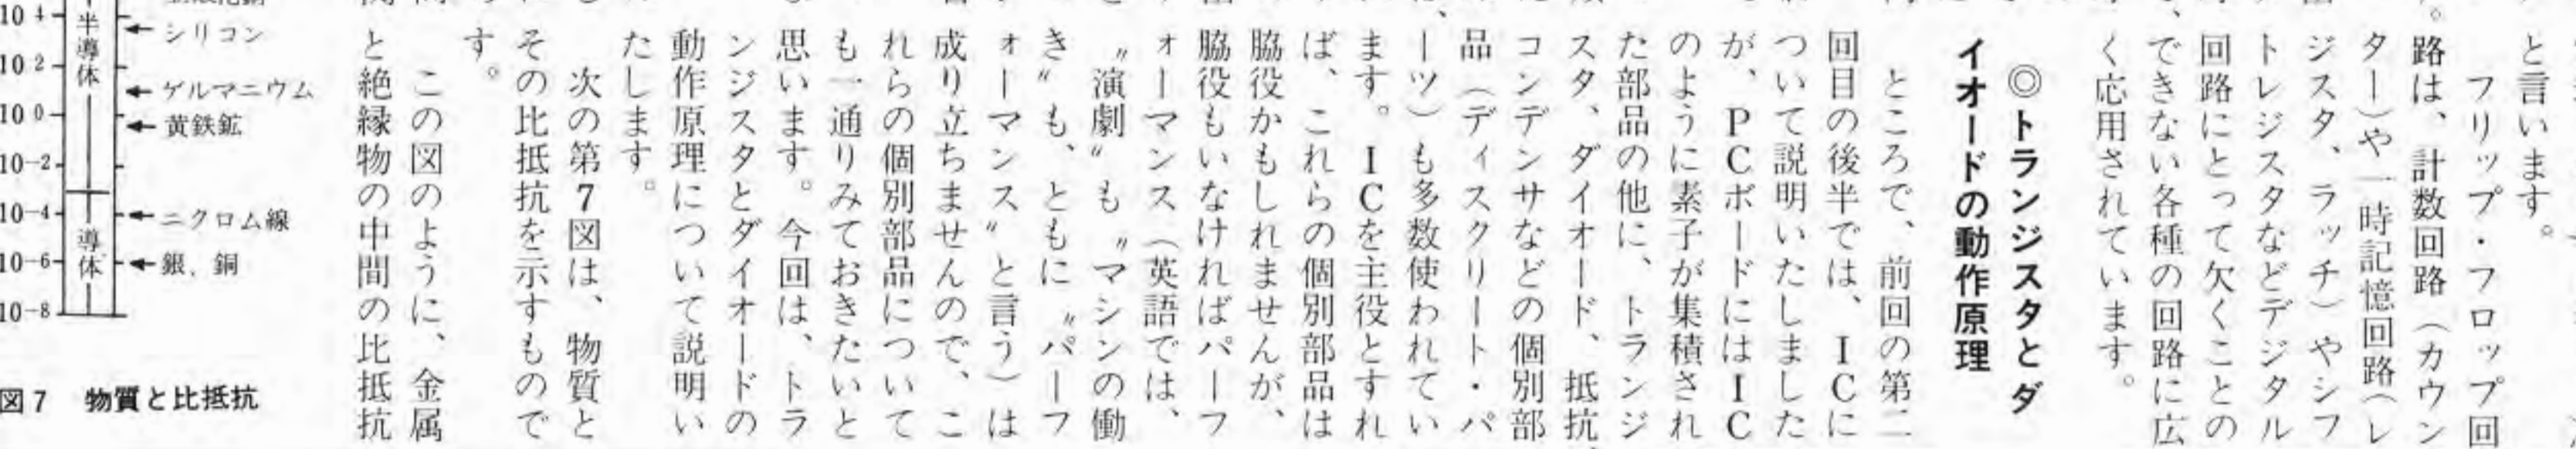 と言います。
フリップ・フロップ回
路は、計数回路（カウン
ター）や一時記憶回路（レ
ジスタ、ラッチ）やシフ
トレジスタなどデジタル
回路にとって欠くことの
できない各種の回路に広
く応用されています。
◎トランジスタとダ
イオードの動作原理
ところで、前回の第二
回目の後半では、ICに
ついて説明いたしました
が、PCボードにはIC
のように素子が集積され
た部品の他に、トランジ
スタ、ダイオード、抵抗、
コンデンサなどの個別部
品（ディスクリート・パ
ーツ）も多数使われてい
ます。ICを主役とすれ
ば、これらの個別部品は
脇役かもしれませんが、
脇役もいなければパーフ
ォーマンス（英語では、
〝演劇〟も〝マシンの働
き〟も、ともに〝パーフ
ォーマンス〟と言う）は
成り立ちませんので、こ
れらの個別部品について
も一通りみておきたいと
思います。今回は、トラ
ンジスタとダイオードの
動作原理について説明い
たします。
次の第7図は、物質と
その比抵抗を示すもので
す。
この図のように、金属
と絶縁物の中間の比抵抗
10⁴
10²
10⁰
10⁻²
10⁻⁴
10⁻⁶
10⁻⁸
半導体
導体
シリコン
ゲルマニウム
黄鉄鉱
ニクロム線
銀、銅
図7 物質と比抵抗